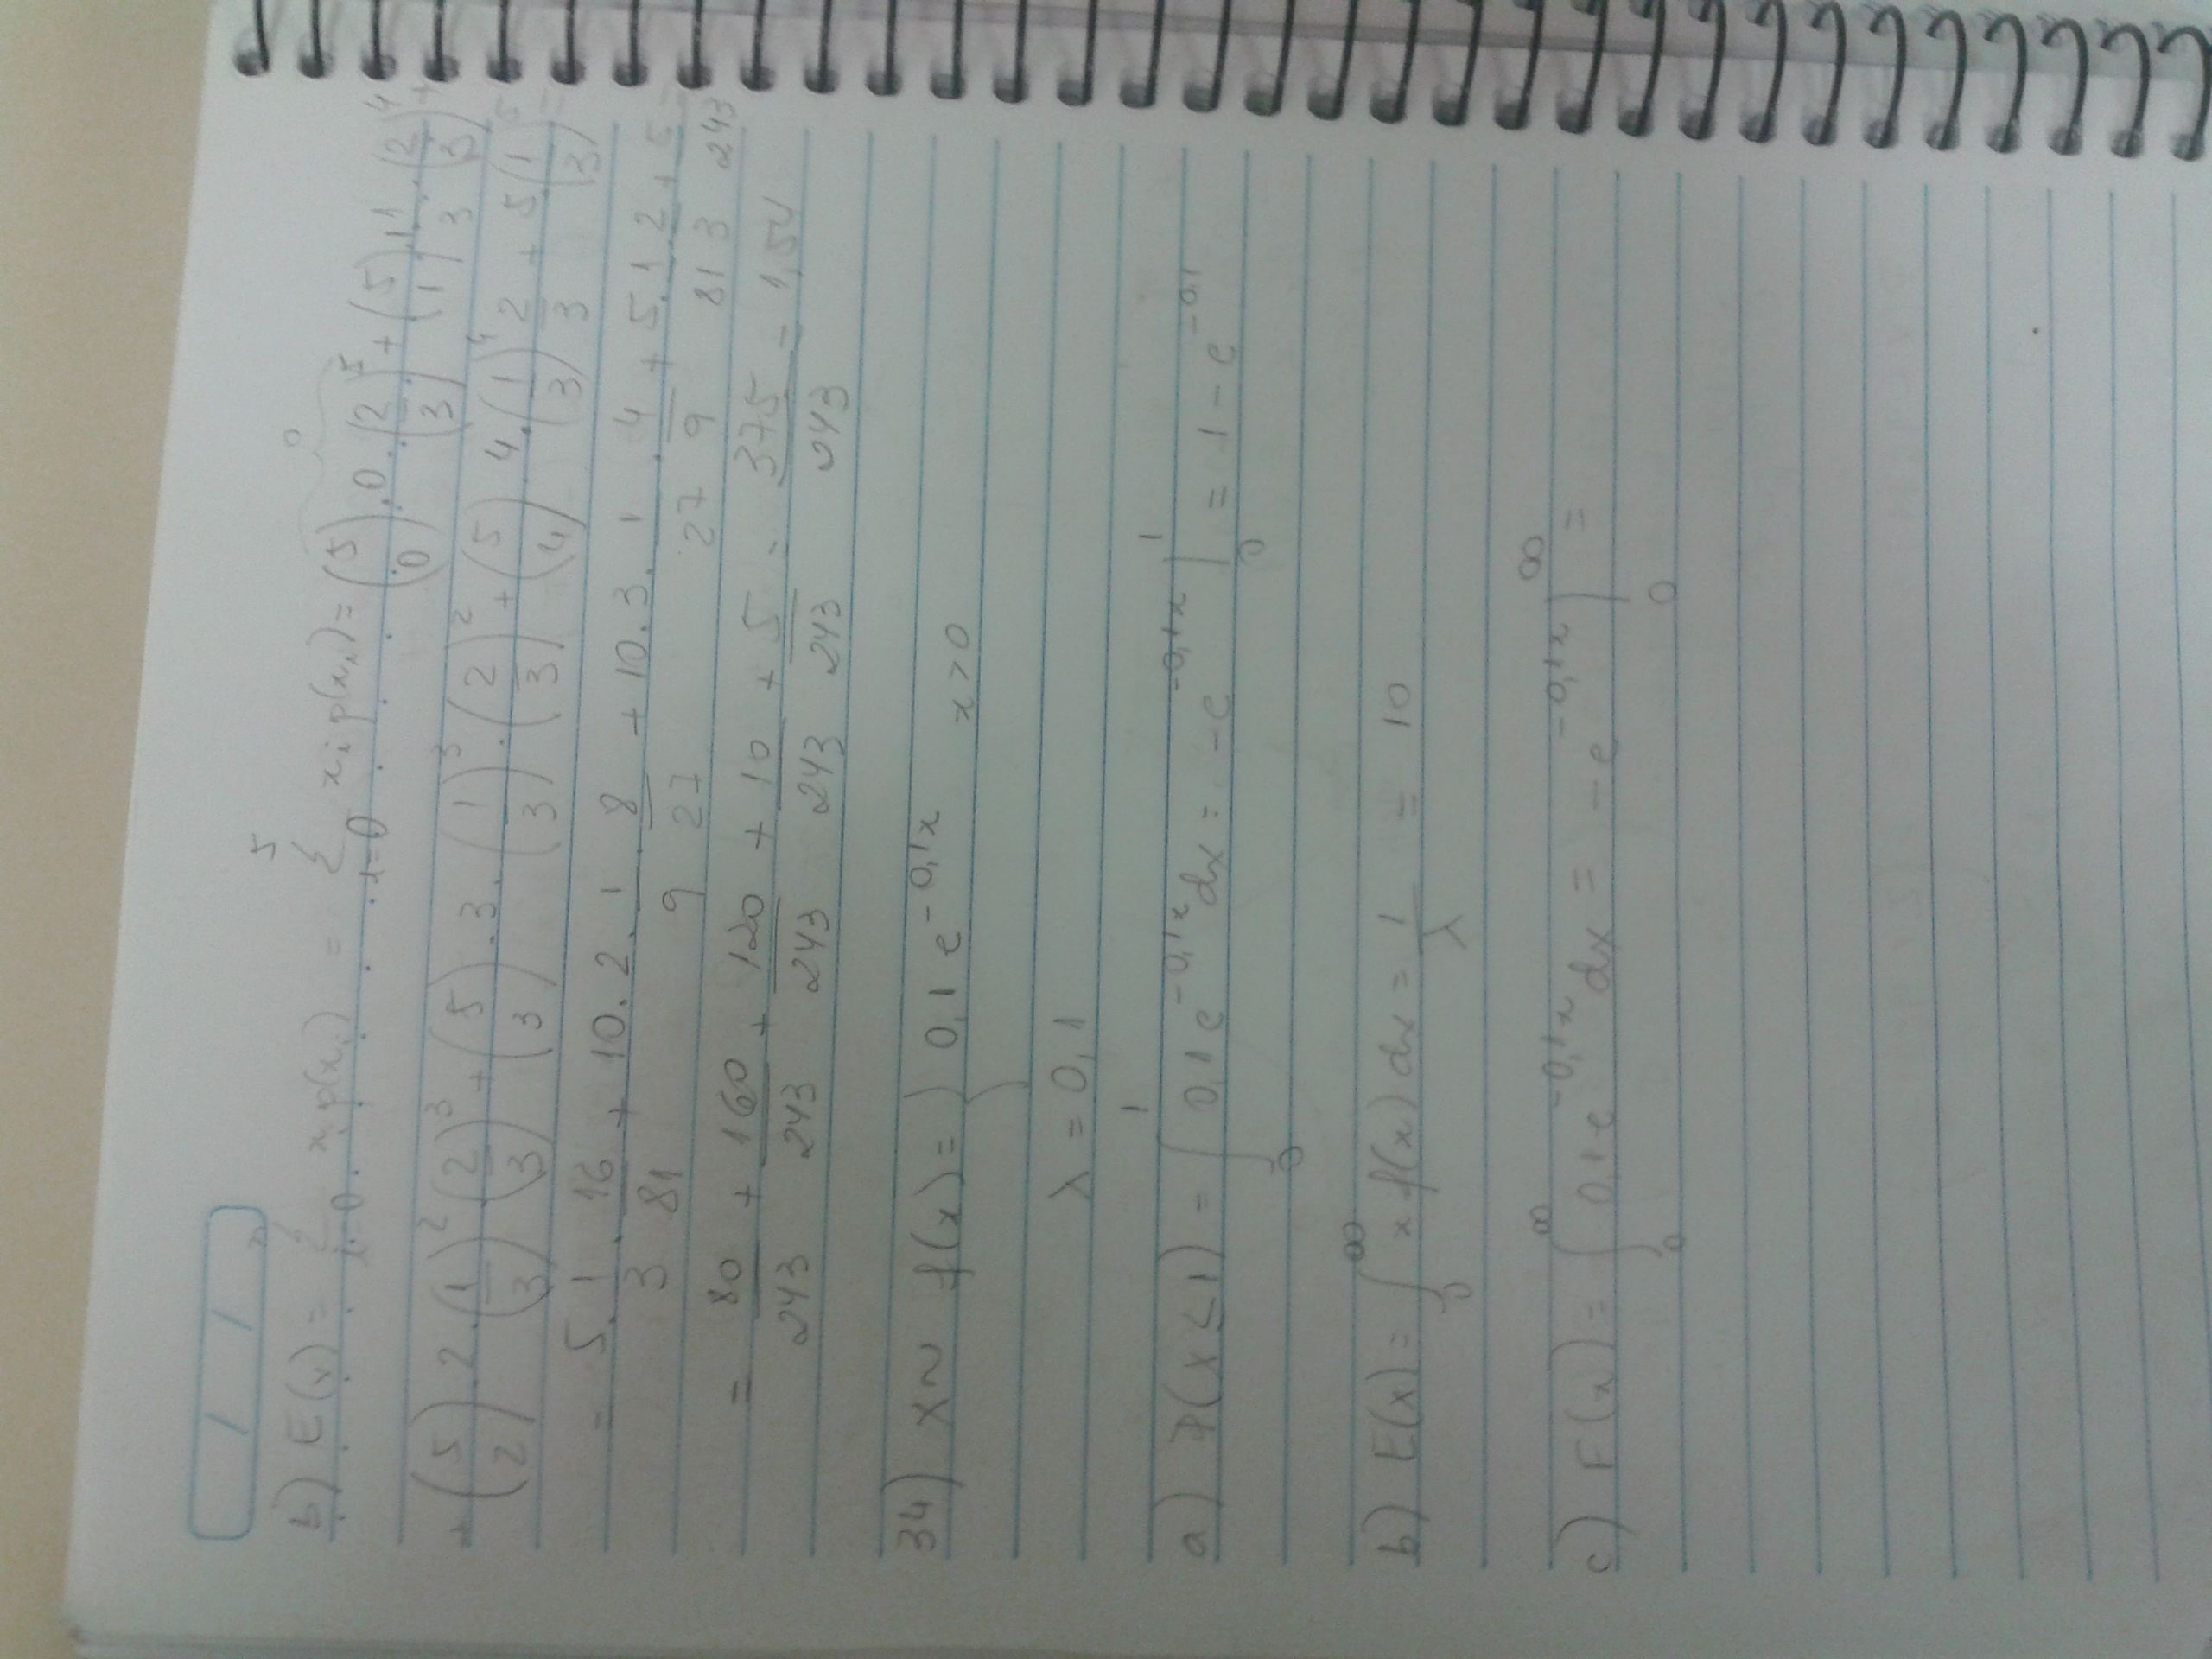 b) E(x) = Σ i=0 n xi p(xi) = Σ i=0 5 xi p(xi) = (5 0) . 0 . (2/3)^5 + (5 1) . 1 . 1/3 . (2/3)^4 +
0
+ (5 2) . 2 . (1/3)^2 (2/3)^3 + (5 3) . 3 . (1/3)^3 . (2/3)^2 + (5 4) 4 . (1/3)^4 2/3 + 5 . (1/3)^5 =
= 5 . 1/3 . 16/81 + 10 . 2 . 1/9 . 8/27 + 10 . 3 . 1/27 . 4/9 + 5 . 1/81 . 2/3 + 5/243 =
= 80/243 + 160/243 + 120/243 + 10/243 + 5/243 . . 375/243 = 1,54
34) X ~ f(x) = { 0,1 e^-0,1x x > 0
λ = 0,1
a) P(X ≤ 1) = ∫0^1 0,1 e^-0,1x dx = -e^-0,1x |0^1 = 1 - e^-0,1
b) E(x) = ∫0^∞ x f(x) dx = 1/λ = 10
c) F(x) = ∫0^∞ 0,1 e^-0,1x dx = -e^-0,1x |0^∞ =